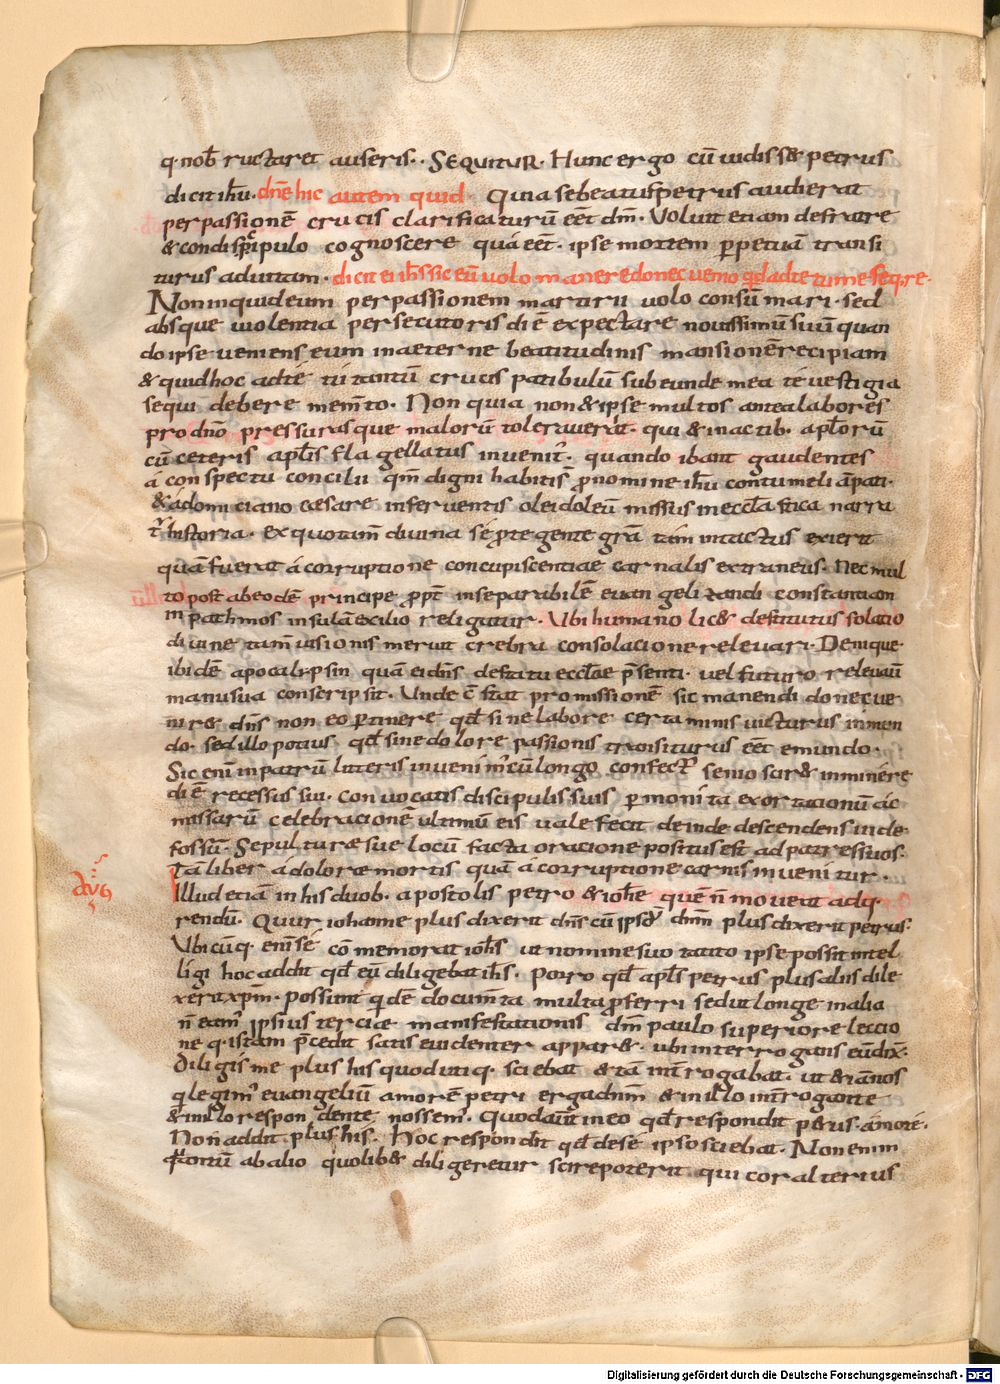 q nob̄ ructaret auseris. SEQUITUR. Hunc ergo cū uidiss& petrus
dicit ihū. dn̄e hic autem quid. Quia se beatus petrus audierat
per passionē crucis clarificaturū eēt dm̄. Voluit etiam de fratre
& condiscipulo cognoscere qua eēt. ipse mortem ꝑpetuā transi
turus ad uitam. dicit ei ih̄s sic eū uolo manere donec uenio qd ad te tu me seq̄re.
Non inquid eum per passionem martirii uolo consūmari. sed
absque uiolentia persecutoris diē expectare nouissimū suū quan
do ipse ueniens eum in aeterne beatitudinis mansionē recipiam
& quid hoc ad tē tū tantū crucis patibulū subeunde mea tē uestigia
sequi debere mem̄to. Non quia non & ipse multos antea labores
pro dn̄o pressurasque malorū tolerauerat. qui & in actib. apl̄orū
cū ceteris apl̄is flagellatus inuenit̄. quando ibant gaudentes
a conspectu concilii qm̄ digni habiti s̄ pro nomine ih̄u contumeliā pati.
& á domiciano caesare in feruentis olei doleū missus in eccl̄astica narra
t̄ historia. ex quo tam̄ diuina sé protegente grā tam intactus exierit
quā fuerat á corruptione concupiscentiae carnalis extraneus. Nec mul
to post ab eodē principe ꝓpt̄ inseparabilē euangelizandi constantiam
in pathmos insulā exilio religatur. Ubi humano lic& destitutus solatio
diuine tam̄ uisionis meruit crebra consolacione releuari. Denique
ibi dē apocalypsin quā ei dn̄s de statu eccl̄ae p̄senti. uel futuro releuauī
manu sua conscripsit. Unde c̄stat promissionē sic manendi donec ue
nir& dn̄s non eo ꝑtinere qd̄ sine labore certaminis uicturus in mun
do. sed illo potius qd̄ sine dolore passionis transiturus eēt e mundo.
Sic enī in patrū litteris inuenim̄ cū longo confect̄ senio sar& inminere
diē recessus sui. conuocatis discipulis suis ꝑ monita exortationū ác
missarū celebracionē ultimū eis uale fecit deinde descendens in de
fossū. Sepulturae sue locū facta oracione positus est ad patres suos.
Tā liber á dolorae mortis quā á corruptione carnis inuenitur.
AVG
Illud etiā in his duob. apostolis petro & ioh̄e quē n̄ moueat ad q̄
rendū. Quur iohanne plus dixerit dn̄s cū ipsū dn̄m plus dixerit petrus.
Ubicūq. enī sé com̄memorat ioh̄s ut nomine suo tacito ipse possit intel
ligi hoc addit qd̄ eū diligebat ih̄s. Porro qd̄ apl̄s petrus plus aliis dile
xerit xp̄m. Possunt qidē documēta multa ꝓferri sed ut longe in alia
n̄ eam̄ ipsius terciae manifestationis dn̄m paulo superiore leccio
ne q istam p̄cedit satis euidenter appar&. ubi interrogans eū dix̄.
Diligis me plus his quod utiq. sciebat & tā int̄rogabat. ut & iā nos
q legim̄ euangeliū amorē petri erga dn̄m & in illo int̄rogante
& in illo respondente nossem̄. Quod aut̄ in eo qd̄ respondit p&rus. ámó té.
Non addit plus his. Hoc respondit qd̄ de se ipso sciebat. Non enim
q̄ntū ab alio quolib& diligeretur scire poterat qui cor alterius
Digitalisierung gefördert durch die Deutsche Forschungsgemeinschaft - DFG